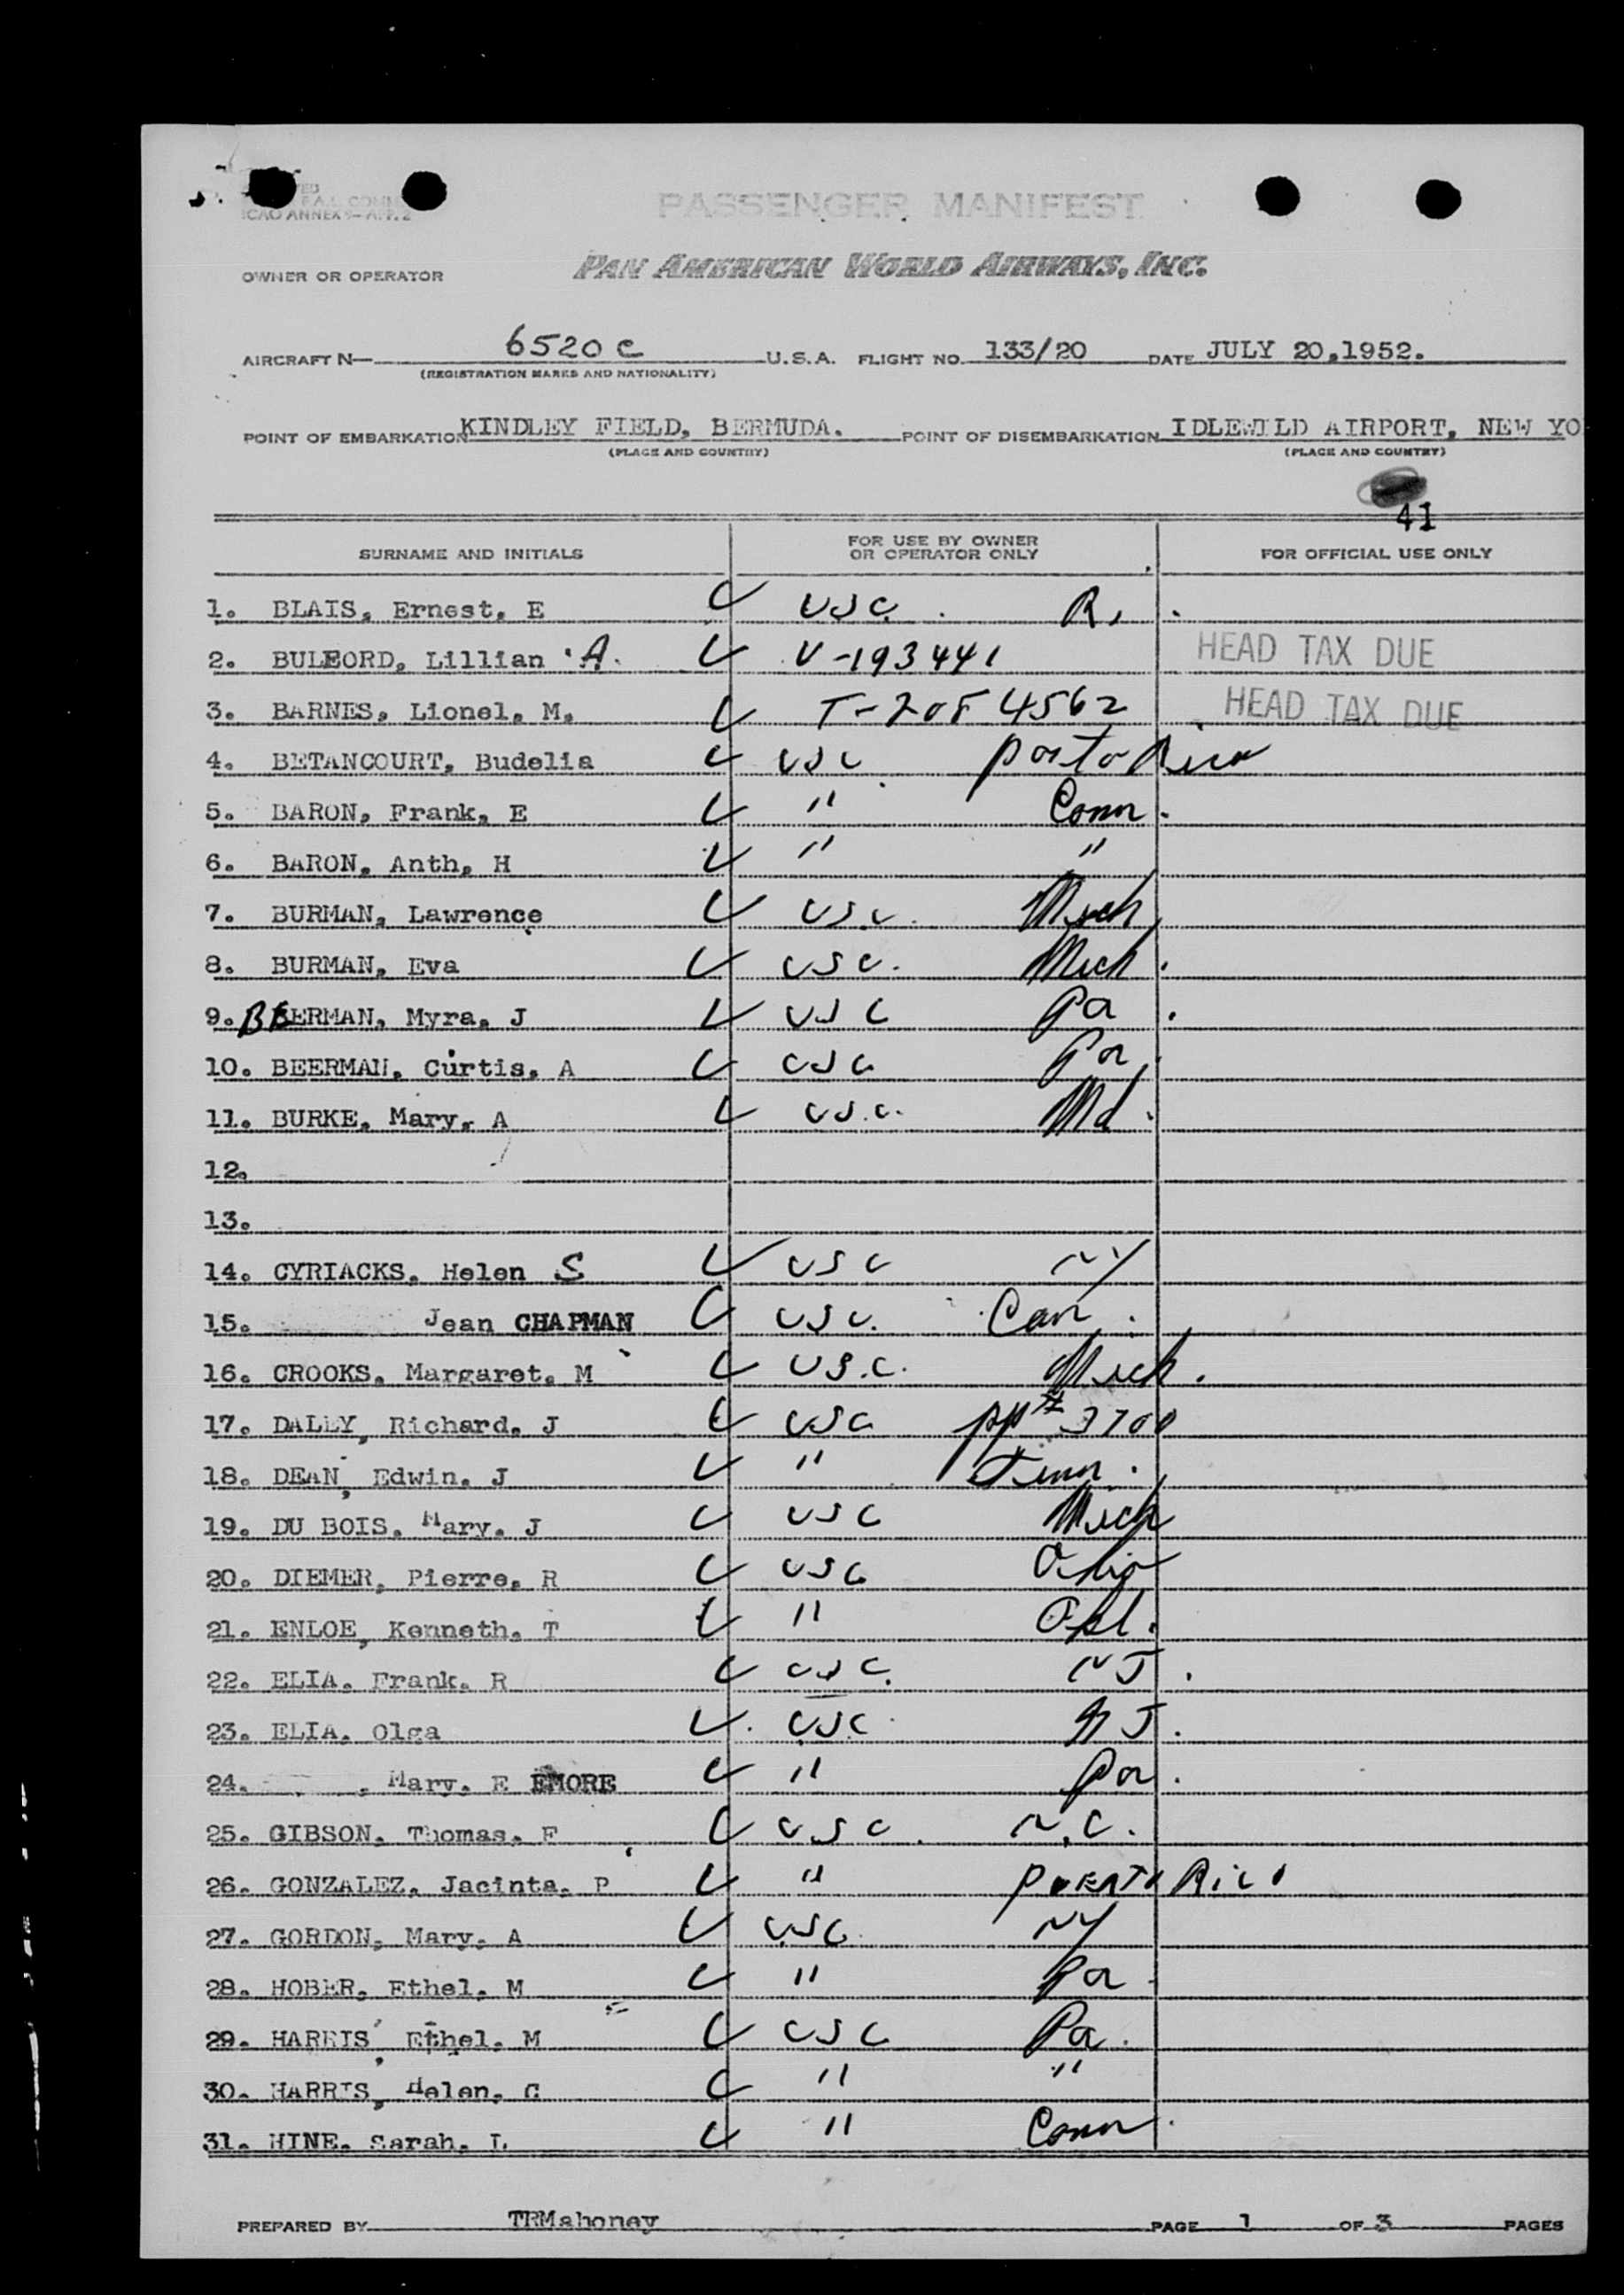 PASSENGER MANIFEST
ICAO ANNEX 9—APP. 2
OWNER OR OPERATOR PAN AMERICAN WORLD AIRWAYS, INC.
AIRCRAFT N— 6520 C U.S.A. FLIGHT NO. 133/20 DATE JULY 20,1952.
(REGISTRATION MARKS AND NATIONALITY)
POINT OF EMBARKATION KINDLEY FIELD, BERMUDA. POINT OF DISEMBARKATION IDLEWILD AIRPORT, NEW YO
(PLACE AND COUNTRY) (PLACE AND COUNTRY)
41
SURNAME AND INITIALS FOR USE BY OWNER OR OPERATOR ONLY FOR OFFICIAL USE ONLY
1. BLAIS, Ernest, E USC R.
2. BULFORD, Lillian A. V-193441 HEAD TAX DUE
3. BARNES, Lionel, M, HEAD TAX DUE
4. BETANCOURT, Budelia USC Porto Rico
5. BARON, Frank, E " Conn.
6. BARON, Anth, H " "
7. BURMAN, Lawrence USC. Mich
8. BURMAN, Eva USC. Mich.
9. BEERMAN, Myra, J USC Pa.
10. BEERMAN, Curtis, A USC Pa.
11. BURKE, Mary, A U.S.C. Md.
12.
13.
14. CYRIACKS, Helen S USC NY
15. Jean CHAPMAN USC.
16. CROOKS, Margaret, M U.S.C. Mich.
17. DALEY, Richard, J USC pp# 3700
18. DEAN, Edwin, J " Tenn.
19. DU BOIS, Mary, J USC Mich
20. DIEMER, Pierre, R USC Ohio
21. ENLOE, Kenneth, T " Okl.
22. ELIA, Frank, R USC. NJ.
23. ELIA, Olga USC. NJ.
24. , Mary, E EMORE " Pa.
25. GIBSON, Thomas, F USC. N.C.
26. GONZALEZ, Jacinta, P " PUERTO RICO
27. GORDON, Mary, A USC. NY
28. HOBER, Ethel, M " Pa
29. HARRIS, Ethel, M USC Pa.
30. HARRIS, Helen, C " "
31. HINE, Sarah, L " Conn.
PREPARED BY TRMahoney PAGE 1 OF 3 PAGES